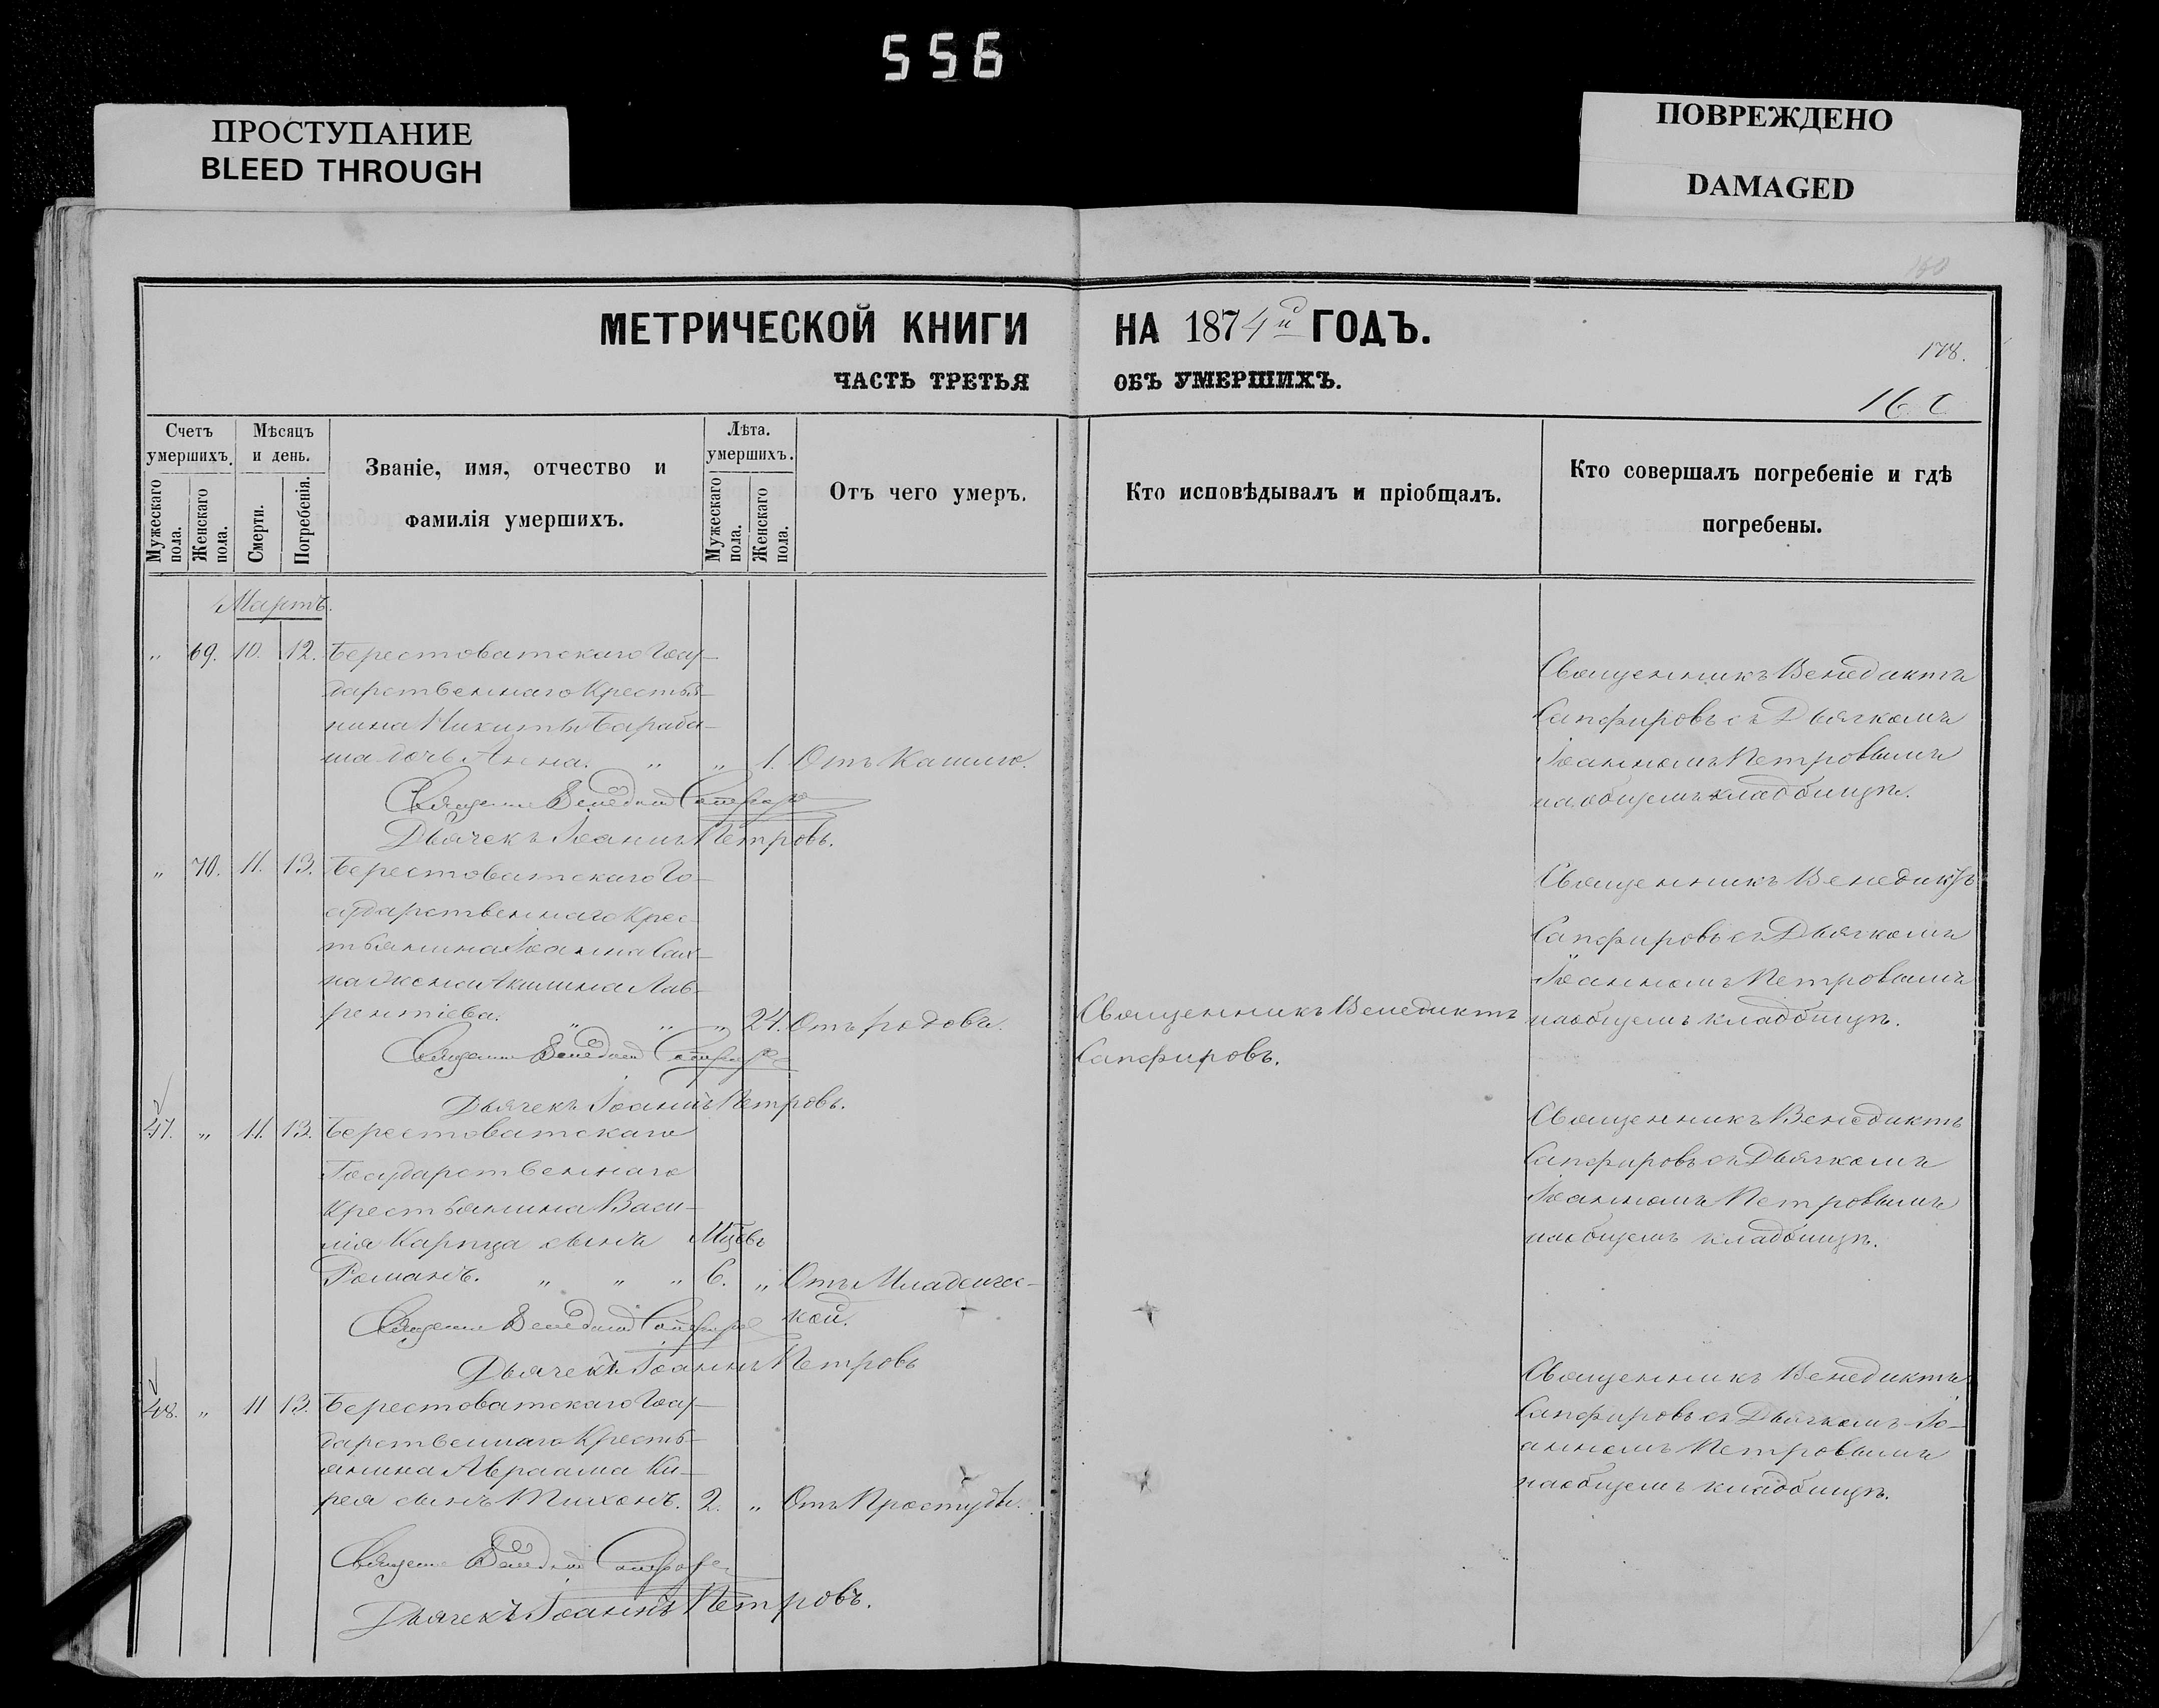 556
ПРОСТУПАНИЕ
BLEED THROUGH
ПОВРЕЖДЕНО
DAMAGED
МЕТРИЧЕСКОЙ КНИГИ НА 1874й ГОДЪ.
ЧАСТЬ ТРЕТЬЯ ОБЪ УМЕРШИХЪ.
178.
160
Счетъ умершихъ.
Мужескаго пола.
Женскаго пола.
Мѣсяцъ и день.
Смерти.
Погребенія.
Званіе, имя, отчество и
фамилія умершихъ.
Лѣта. умершихъ.
Мужескаго пола.
Женскаго пола.
Отъ чего умеръ.
Кто исповѣдывалъ и пріобщалъ.
Кто совершалъ погребеніе и гдѣ
погребены.
Мартъ.
„ 69. 10. 12. Берестоватскаго Госу-
дарственнаго Крестья-
нина Никиты Бараба-
ша дочь Анна. „ „ 1. Отъ Кашлю.
Священникъ Венедиктъ Сапфировъ
Дьячекъ Іоаннъ Петровъ.
Священникъ Венедиктъ
Сапфировъ съ Дьячкомъ
Іоанномъ Петровымъ
на общемъ кладбищѣ.
„ 70. 11. 13. Берестоватскаго Го-
сударственнаго Крес-
тьянина Іоанна Сах-
на жена Акилина Лав-
рентіева. „ „ „ 24. Отъ родовъ.
Священникъ Венедиктъ Сапфировъ
Дьячекъ Іоаннъ Петровъ.
Священникъ Венедиктъ
Сапфировъ.
Священникъ Венедиктъ
Сапфировъ съ Дьячкомъ
Іоанномъ Петровымъ
на общемъ кладбищѣ.
47. „ 11. 13. Берестоватскаго
Государственнаго
Крестьянина Васи-
лія Карпца сынъ Мцѣвъ
Романъ. „ „ „ 6. „ Отъ Младенчес-
кой.
Священникъ Венедиктъ Сапфировъ
Дьячекъ Іоаннъ Петровъ
Священникъ Венедиктъ
Сапфировъ съ Дьячкомъ
Іоанномъ Петровымъ
на общемъ кладбищѣ.
48. „ 11 13. Берестоватскаго Госу-
дарственнаго Кресть-
янина Авраама Ки-
рея сынъ Тихонъ. 2. „ Отъ Простуды.
Священникъ Венедиктъ Сапфировъ
Дьячекъ Іоаннъ Петровъ.
Священникъ Венедиктъ
Сапфировъ съ Дьячкомъ Іо-
анномъ Петровымъ
на общемъ кладбищѣ.